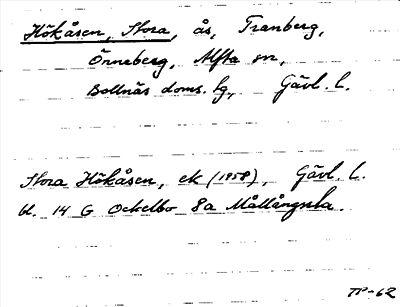 Hökåsen, Stora, ås, Tranberg,
Önneberg, Alfta sn,
Bollnäs doms. hg, Gävl. l.
Stora Hökåsen, ek (1958), Gävl. l.
bl. 14 G Ockelbo 8a Mållångsta.
TP-62